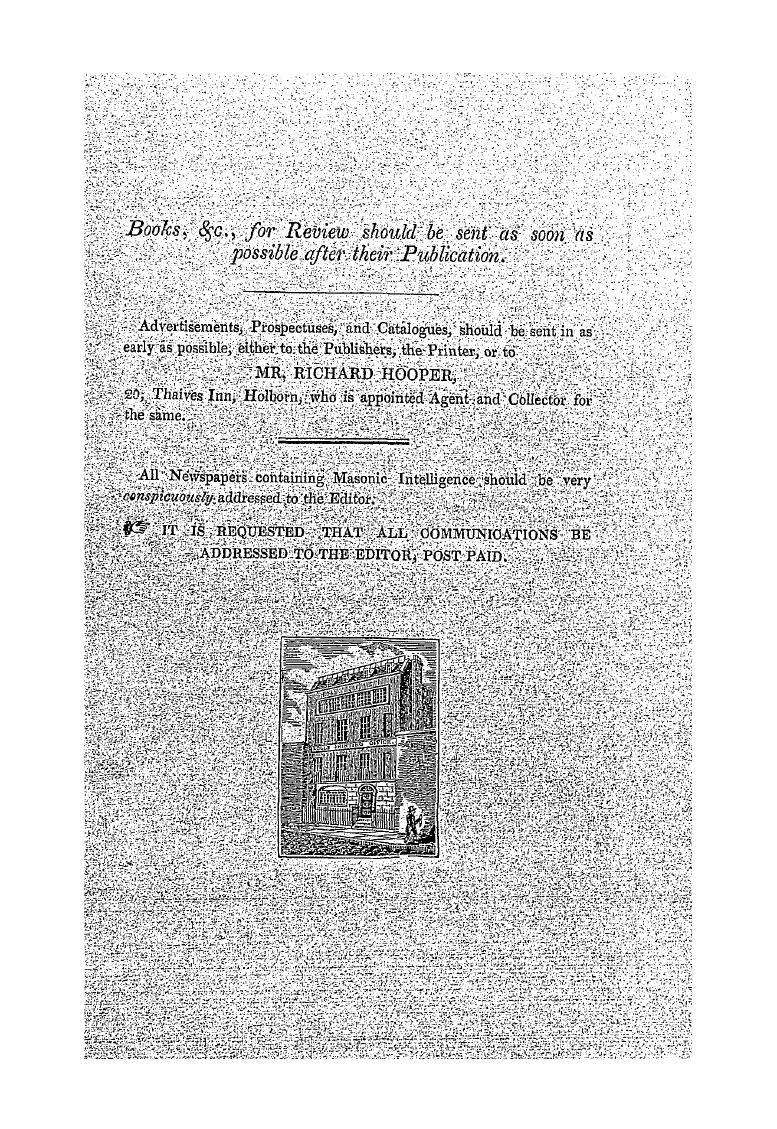 Books, &c., for Review should be sent as soon as
possible after their Publication.
Advertisements, Prospectuses, and Catalogues, should be sent in as
early as possible, either to the Publishers, the Printer, or to
MR. RICHARD HOOPER,
20, Thaives Inn, Holborn, who is appointed Agent and Collector for
the same.
All Newspapers containing Masonic Intelligence should be very
conspicuously addressed to the Editor.
☞ IT IS REQUESTED THAT ALL COMMUNICATIONS BE
ADDRESSED TO THE EDITOR, POST PAID.
PRINTING OFFICE